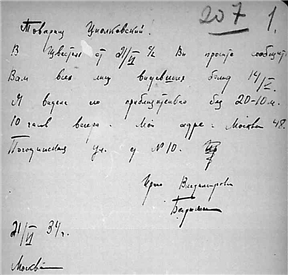 207 1.
Товарищ Циолковский.
В Известиях от 21/VI Вы просите сообщить
Вам всех лиц видевших болид 14/VI.
Я видела его приблизительно без 20-10 м.
10 часов вечера. Мой адрес: Москва 48.
Погодинская ул. д № 10.
Ирина Владимировна
21/VI 34 г.
Москва